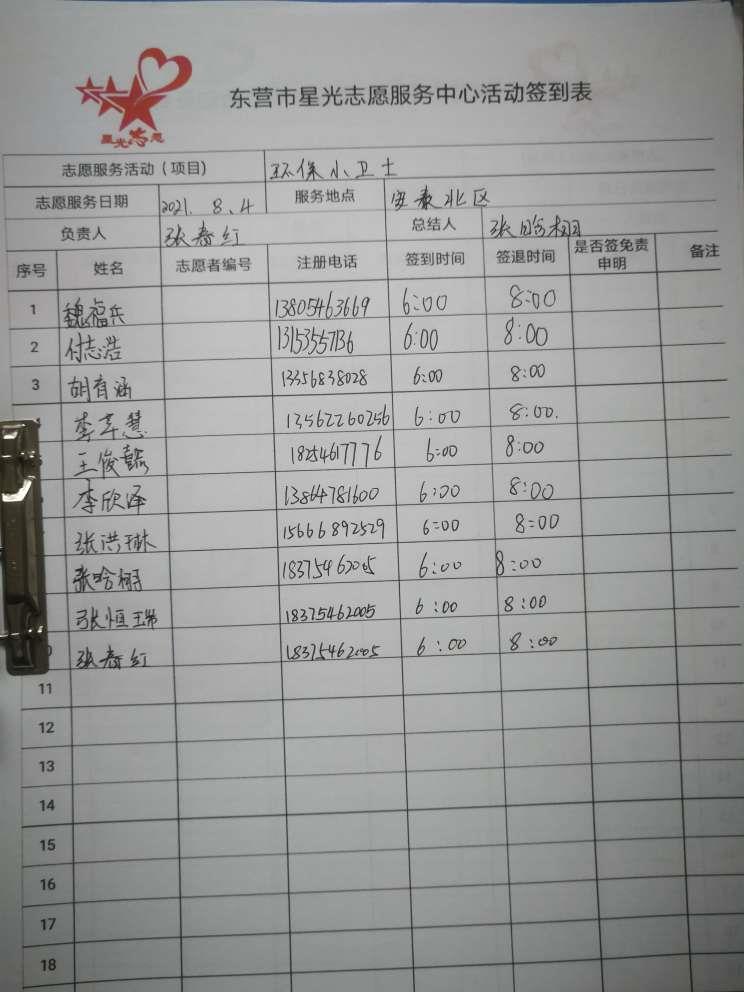 星光志愿
东营市星光志愿服务中心活动签到表
志愿服务活动（项目） 环保小卫士
志愿服务日期 2021.8.4 服务地点 安泰北区
负责人 张春红 总结人 张晗栩
序号 姓名 志愿者编号 注册电话 签到时间 签退时间 是否签免责申明 备注
1 魏福兵 13805463669 6:00 8:00
2 付志浩 13153557136 6:00 8:00
3 胡育涵 13356838028 6:00 8:00
4 李幸慧 13562260256 6:00 8:00.
王俊懿 18254617776 6:00 8:00
李欣泽 13864781600 6:00 8:00
张洪琳 15666892529 6:00 8:00
张晗栩 18375462005 6:00 8:00
张恒瑞 18375462005 6:00 8:00
0 张春红 18375462005 6:00 8:00
11
12
13
14
15
16
17
18